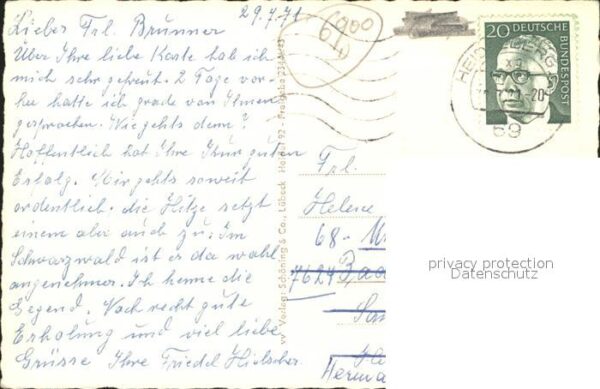 29.7.71
Lieber Frl. Brünner
Über Ihre liebe Karte hab ich
mich sehr gefreut. 2 Tage vor-
her hatte ich grade von Ihnen
gesprochen. Wie gehts denn?
Hoffentlich hat Ihre Kur guten
Erfolg. Mir gehts soweit
ordentlich. die Hitze setzt
einem aber auch zu. Im
Schwarzwald ist es da wohl
angenehmer. Ich kenne die
Gegend. Noch recht gute
Erholung und viel liebe
Grüsse Ihre Friedel Hielscher
VV Verlag: Schöning & Co., Lübeck
20 DEUTSCHE BUNDESPOST
69
Frl.
Helene
68-
7624
Herma
privacy protection
Datenschutz